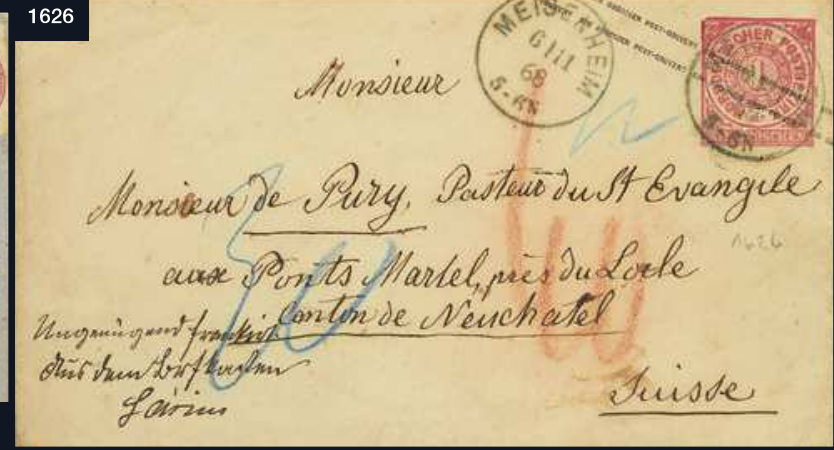 1626
MEISENHEIM
6 III
68
5-6N
Monsieur
Monsieur de Pury, Pasteur du St Evangile
aux Ponts Martel, près du Locle
Canton de Neuchatel
Suisse
Ungenügend frankirt
Aus dem Briefkasten
1626